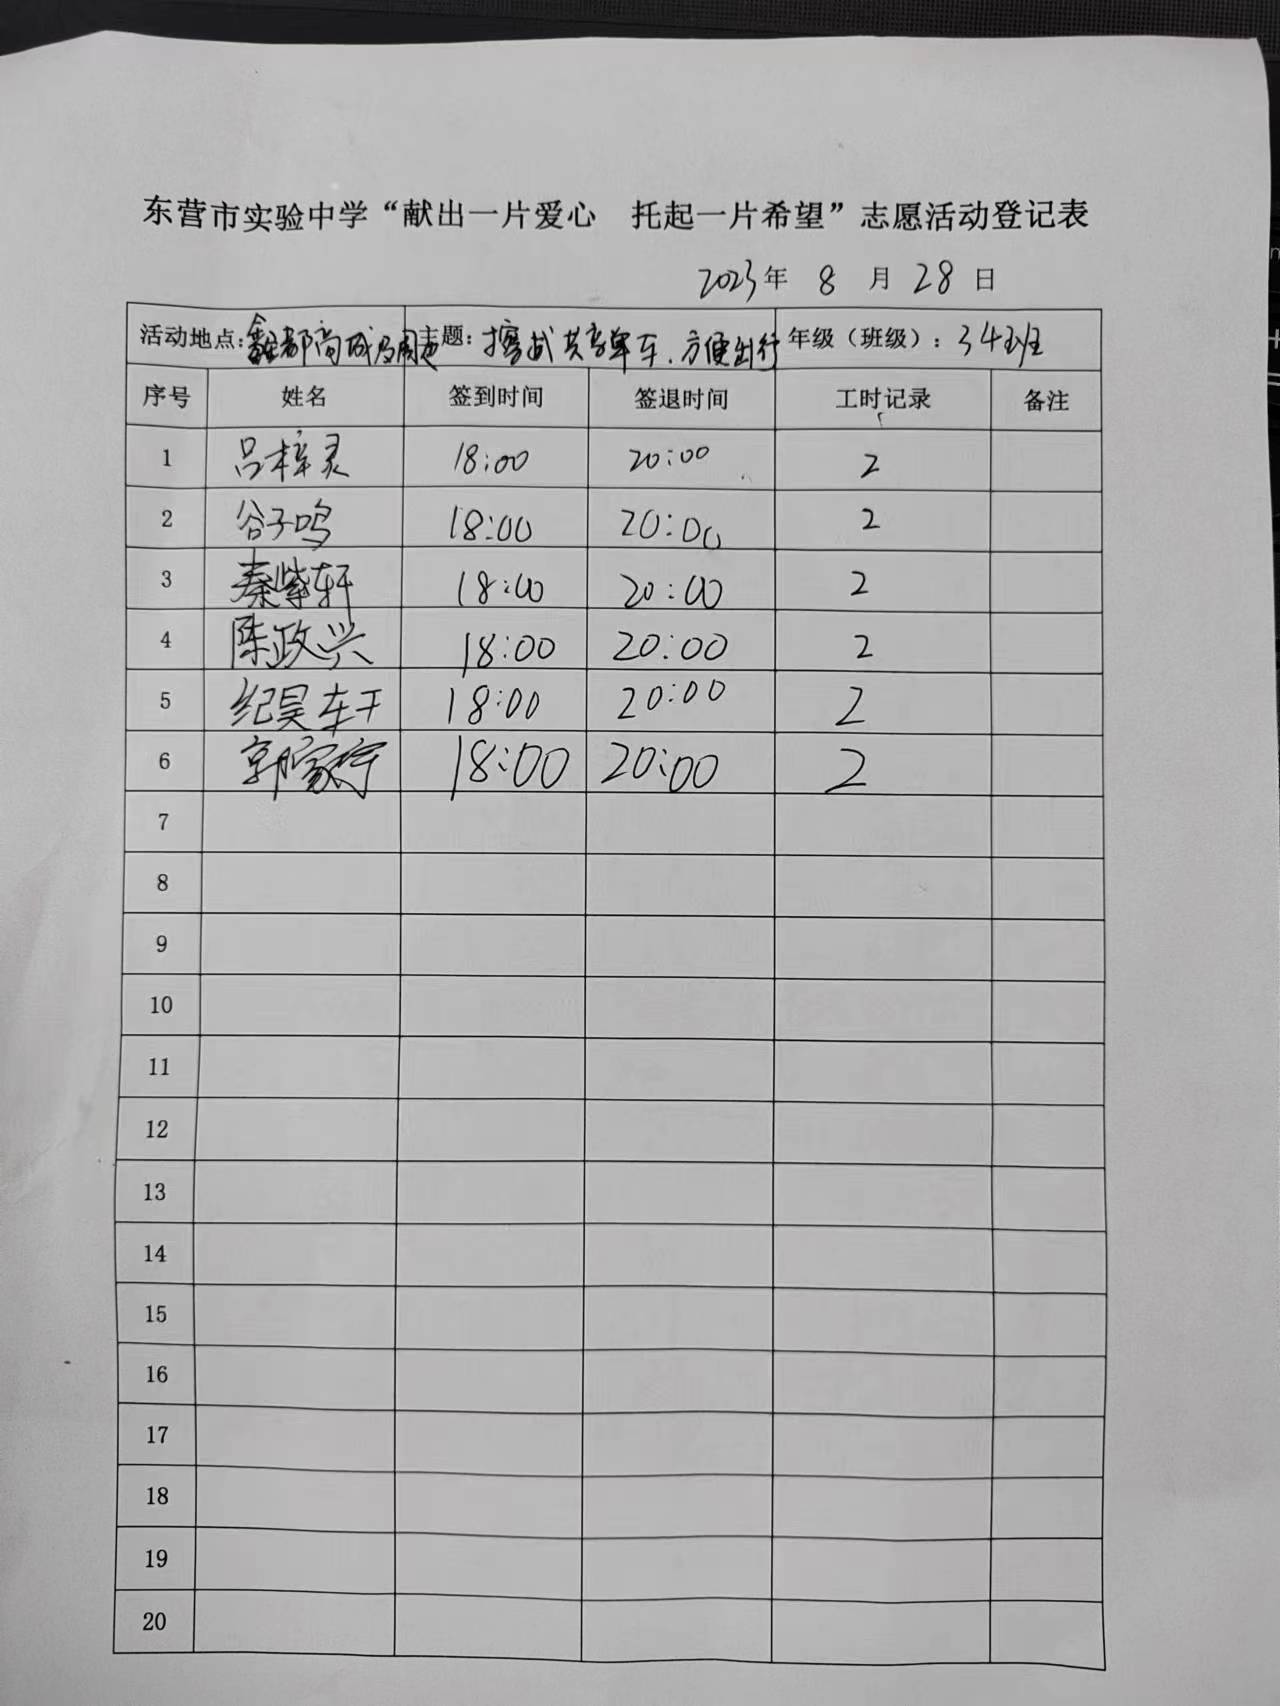 东营市实验中学“献出一片爱心 托起一片希望”志愿活动登记表
2023年 8 月 28 日
活动地点：鑫都商城及周边 主题：擦拭共享单车，方便出行 年级（班级）：34班
序号 姓名 签到时间 签退时间 工时记录 备注
1 吕梓灵 18:00 20:00 2
2 谷子鸣 18:00 20:00 2
3 秦紫轩 18:00 20:00 2
4 陈政兴 18:00 20:00 2
5 纪昊轩 18:00 20:00 2
6 郭家宁 18:00 20:00 2
7
8
9
10
11
12
13
14
15
16
17
18
19
20